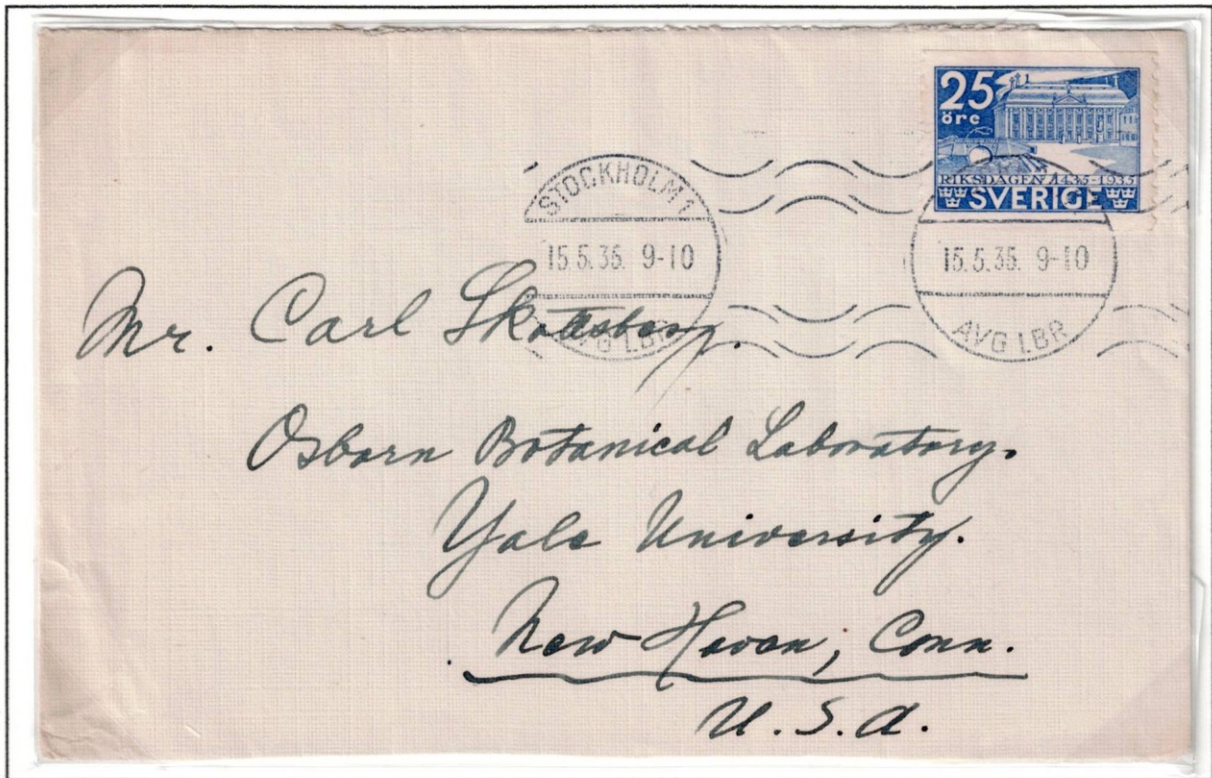 25
öre
RIKSDAGEN 1435-1935
SVERIGE
STOCKHOLM 1
15.5.35. 9-10
AVG LBR
15.5.35. 9-10
AVG LBR
Mr. Carl Skottsberg.
Osborn Botanical Laboratory.
Yale University.
New Haven, Conn.
U.S.A.